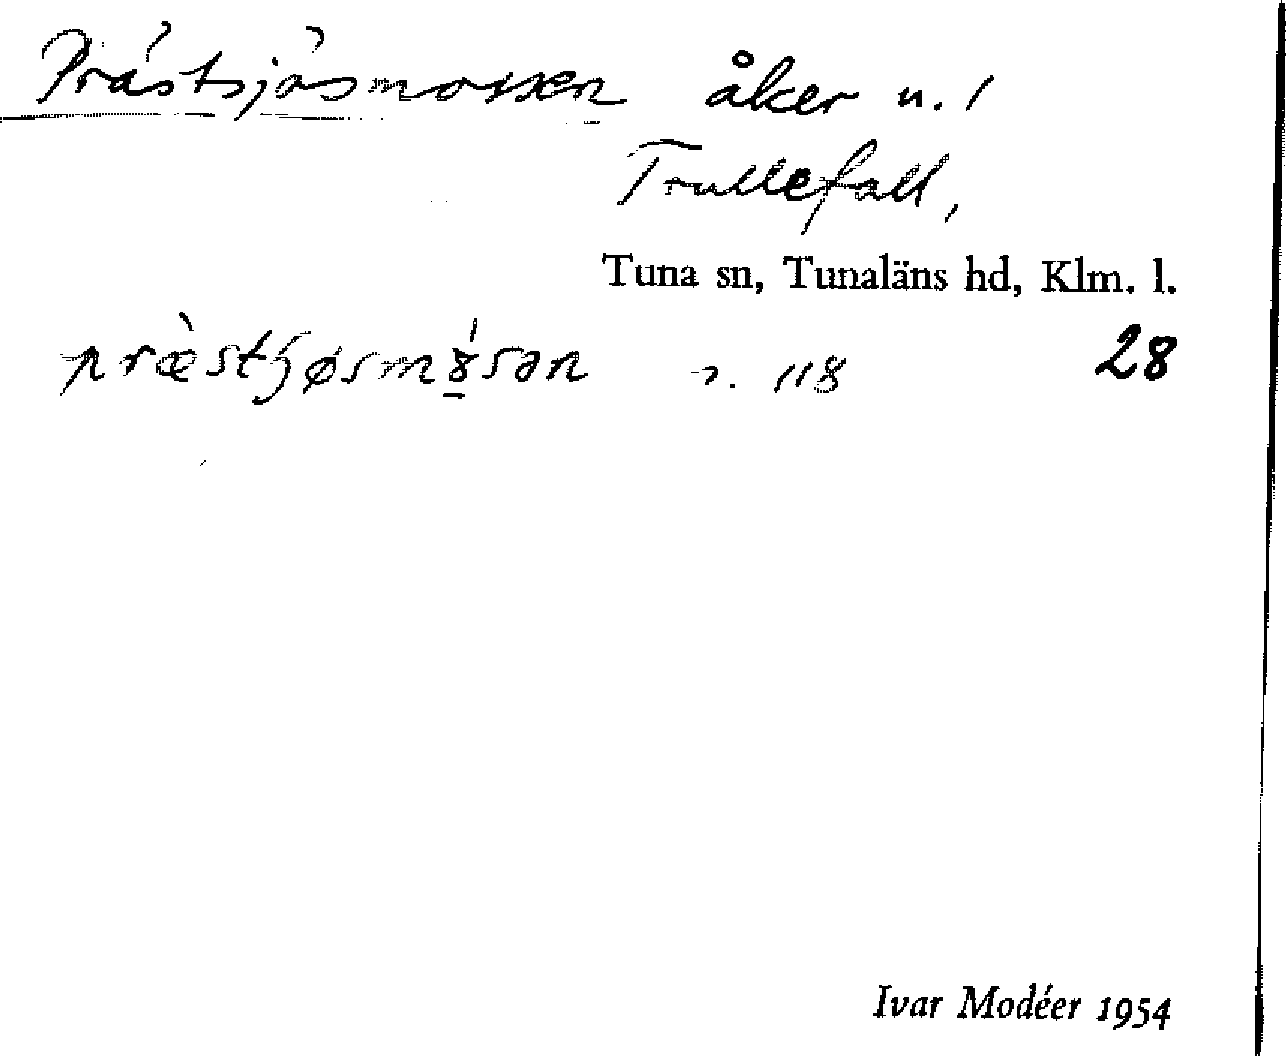 Prästsjösmossen åker u. 1
Trullefall,
Tuna sn, Tunaläns hd, Klm. l.
præ̀stjøsmȣ̱́sən n. 118 28
Ivar Modéer 1954